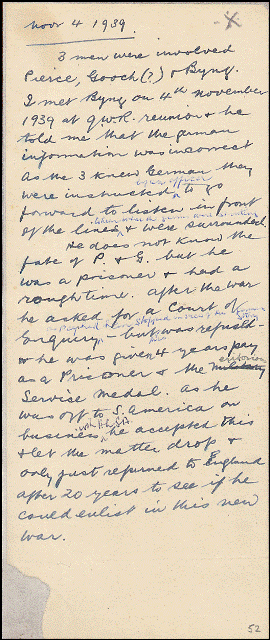 Novr 4 1939.
3 men were involved
Pierce, Gooch(?) & Byng.
I met Byng on 4th November
1939 at Q.W.R. reunion & he
told me that the german
information was incorrect
As the 3 knew German they
were instructed to go
by an officer
forward to listen in front
of the lines, & were surrounded.
He does not know the
fate of P. & G. but he
was a prisoner & had a
rough time. After the war
he asked for a Court of
Enquiry but was refused
& he was given 4 years pay
as a Prisoner & the
Service medal. As he
was off to S. America on
business he accepted this
& let the matter drop &
only just returned to England
after 20 years to see if he
could enlist in this new
war.
52